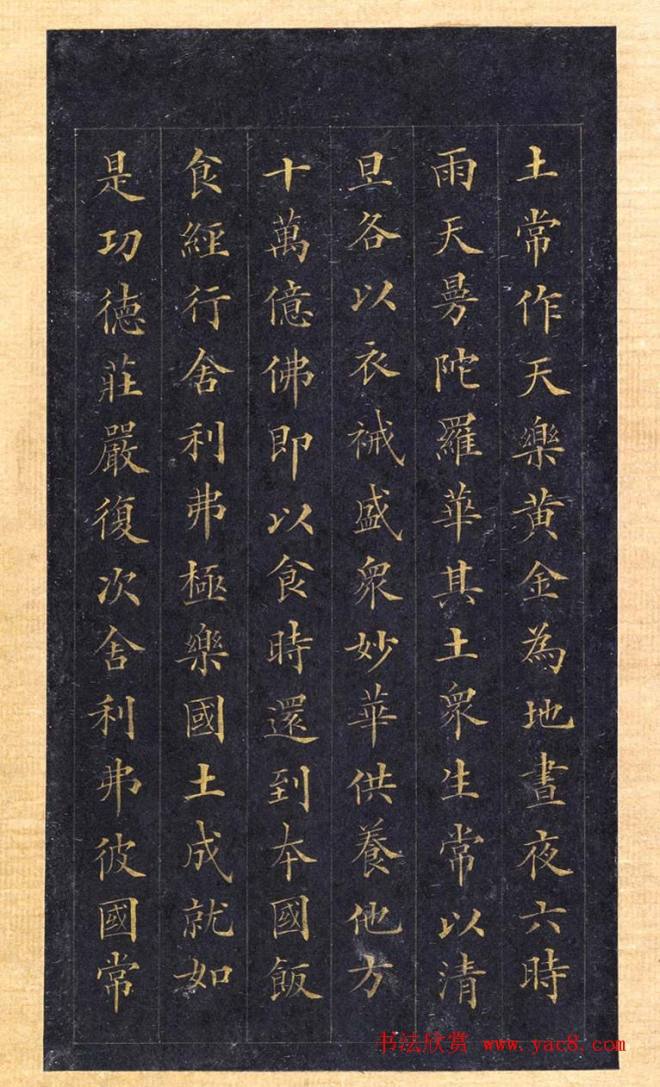 土常作天樂黄金為地晝夜六時
雨天曼陀羅華其土衆生常以清
旦各以衣祴盛衆妙華供養他方
十萬億佛即以食時還到本國飯
食經行舍利弗極樂國土成就如
是功德莊嚴復次舍利弗彼國常
书法欣赏 www.yac8.com